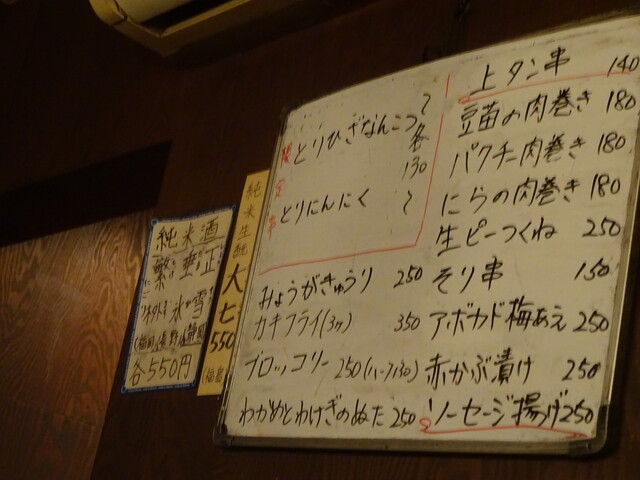 上タン串 140
豆苗の肉巻き 180
パクチー肉巻き 180
にらの肉巻き 180
生ピーつくね 250
そり串 150
アボカド梅あえ 250
赤かぶ漬け 250
ソーセージ揚げ 250
限定串
とりひざなんこつ
各130
とりにんにく
みょうがきゅうり 250
カキフライ(3ヶ) 350
ブロッコリー 250(ハーフ130)
わかめとわけぎのぬた 250
純米生酛
大七
550
純米酒
各550円